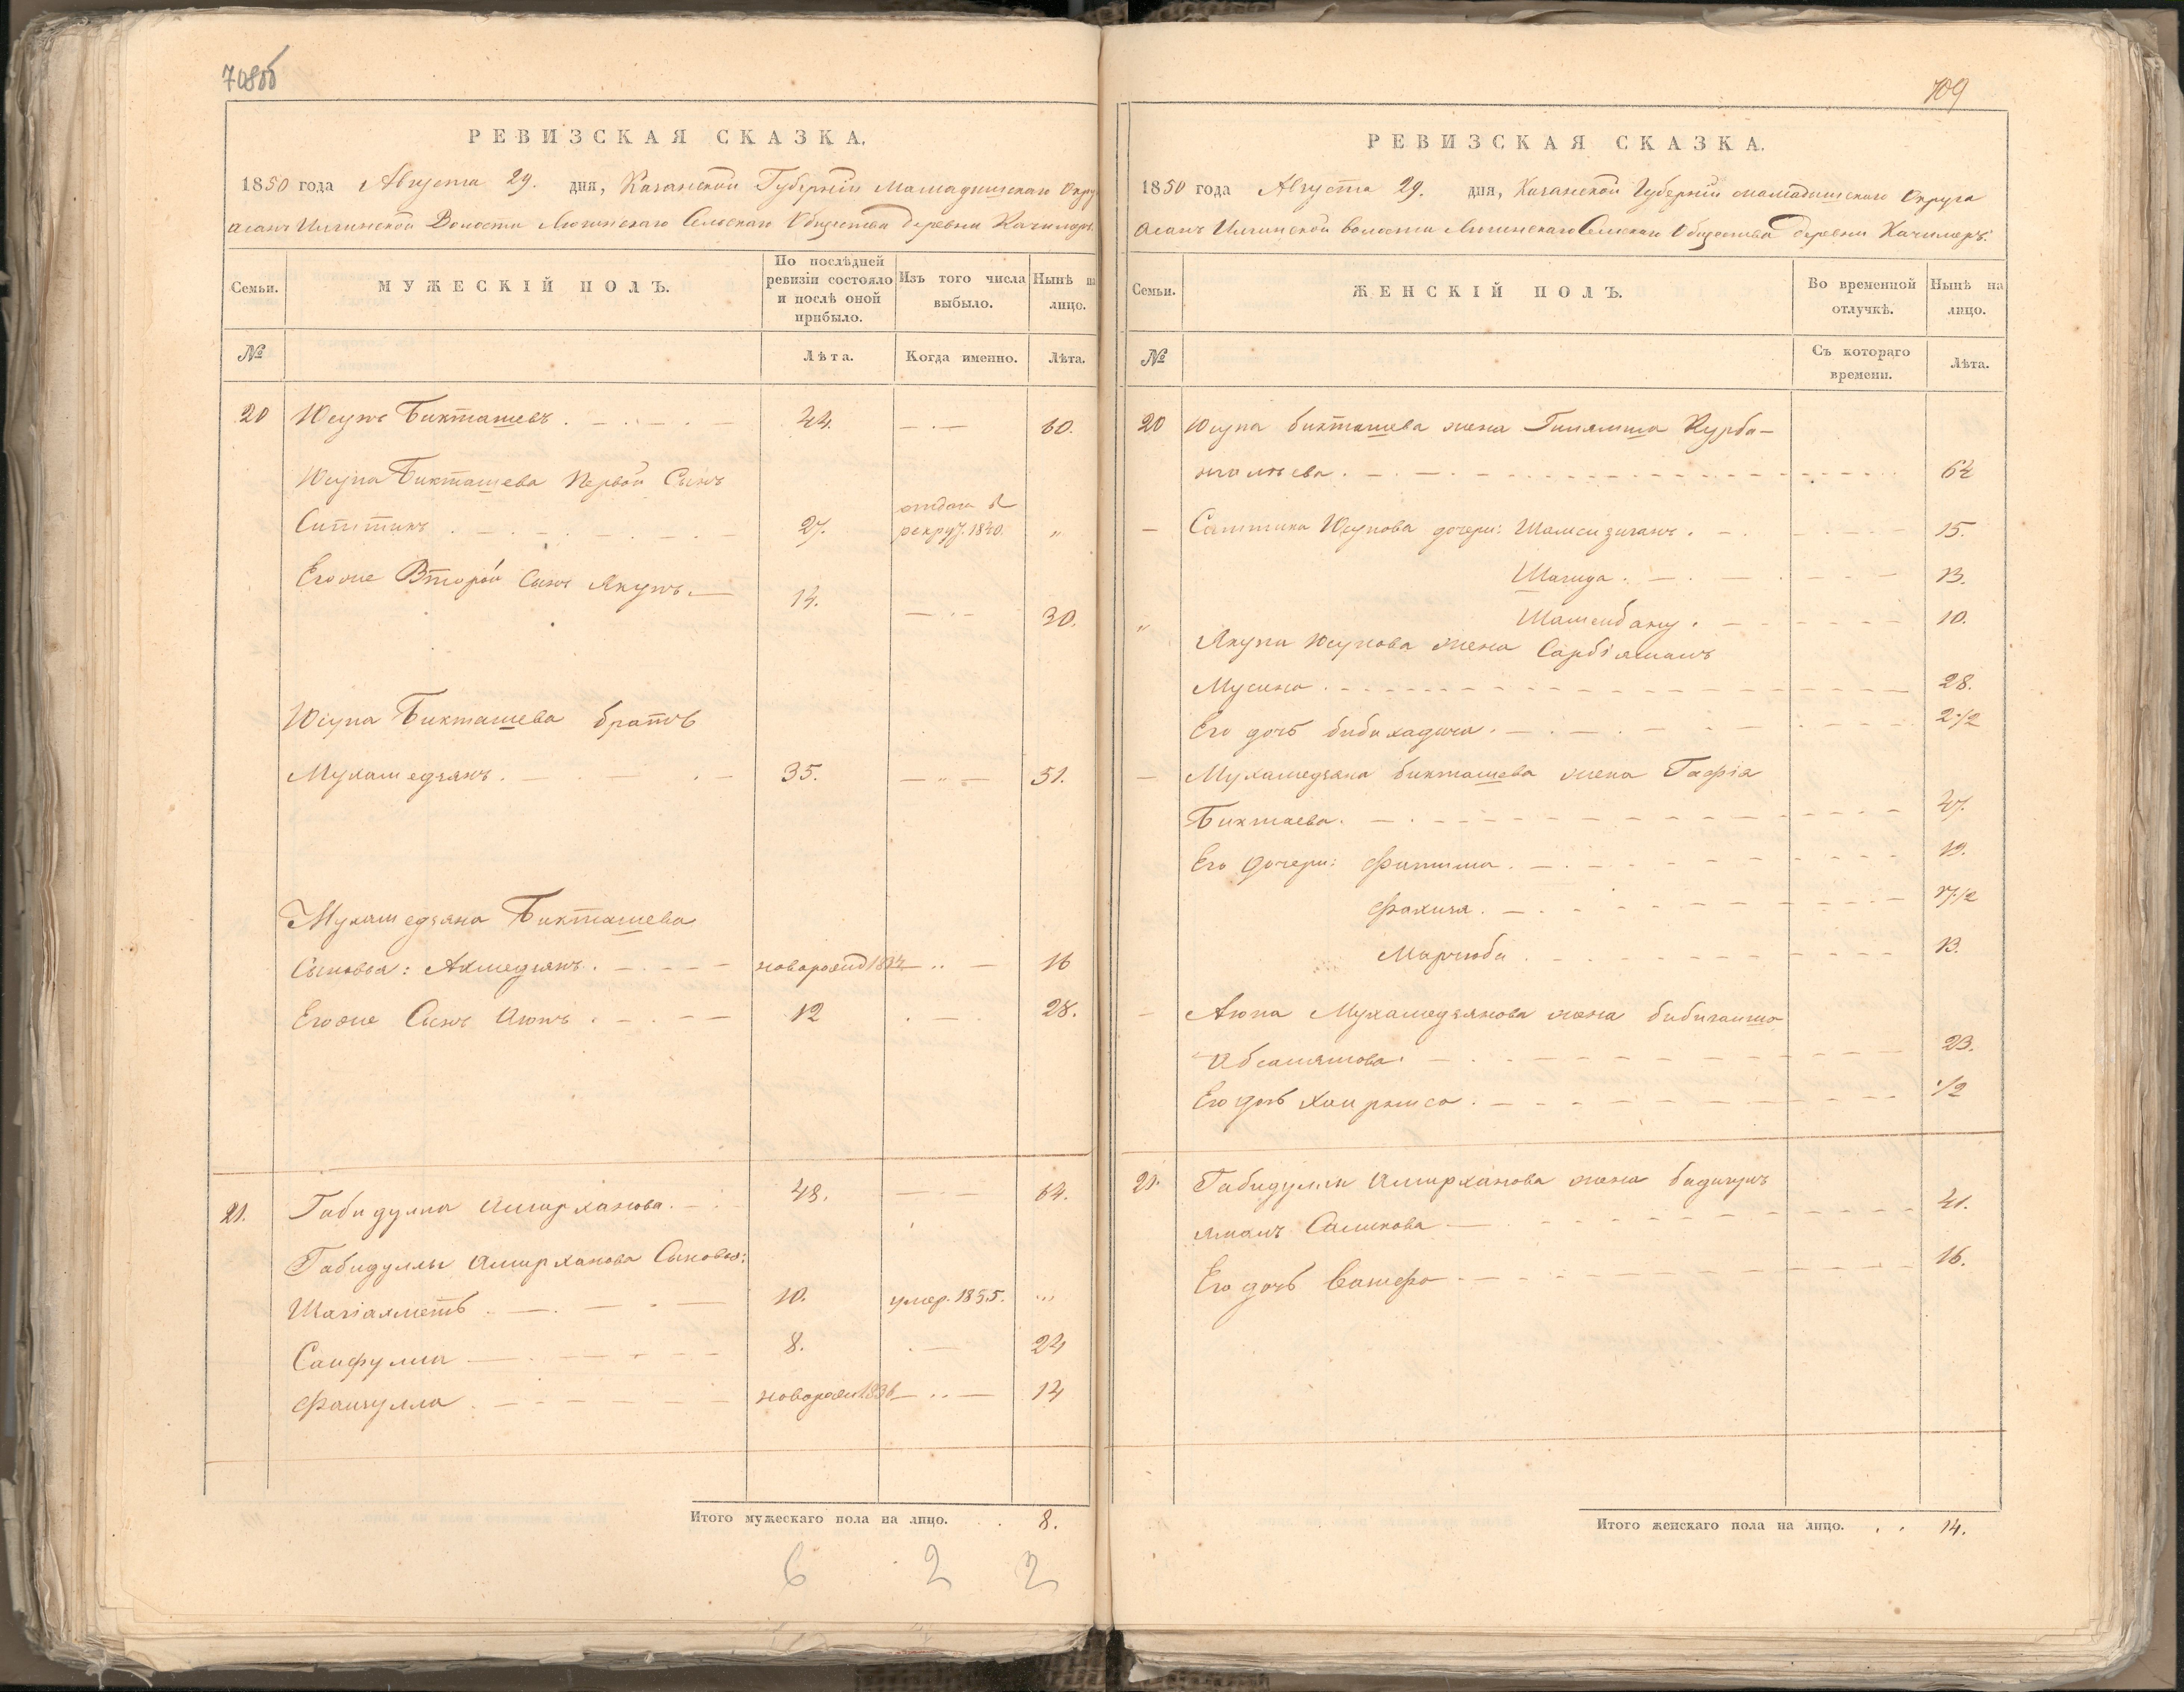 708об
РЕВИЗСКАЯ СКАЗКА.
1850 года Августа 29. дня, Казанской Губерніи Мамадышскаго Окру
Асанъ Илгинской Волости Сельскаго Общества деревни Качимеръ.
Семьи.
МУЖЕСКІЙ ПОЛЪ.
По послѣдней ревизіи состояло и послѣ оной прибыло.
Изъ того числа выбыло.
Нынѣ на лицо.
№
Лѣта.
Когда именно.
Лѣта.
20 Юсупъ Бикташевъ. 44. 60.
Юсупа Бикташева Первой Сынъ
отданъ в
Ситтикъ 27. рекру. 1840. „
Егоже Второй Сынъ Якупъ. 14. 30.
Юсупа Бикташева братъ
Мухамедзянъ. 35. 51.
Мухамедзяна Бикташева
Сыновья: Ахмедзянъ. новорожд 1834 16
Егоже Сынъ Аюпъ. 12 28.
21. Габидулла Амирханова. 48. 64.
Габидуллы Амирханова Сыновья:
Шагіахметъ 10. умер. 1835. „
Саифулла 8. 24
Фаизулла новорож 1836 14
Итого мужескаго пола на лицо. 8.
6 2 2
709
РЕВИЗСКАЯ СКАЗКА.
1850 года Августа 29. дня, Казанской Губерніи Мамадышскаго Округа
Асанъ Илгинской волости Сельскаго Общества деревни Качимеръ.
Семьи.
ЖЕНСКІЙ ПОЛЪ.
Во временной отлучкѣ.
Нынѣ на лицо.
№
Съ котораго времени.
Лѣта.
20 Юсупа бикташева жена Курба-
62
Ситтика Юсупова дочери: Шамсизиганъ. 15.
Шагида. 13.
„ Шамсибану. 10.
Якупа Юсупова жена Сарбіямалъ
Мусина. 28.
Его дочь бибихадича. 2 1/2
Мухамедзяна бикташева жена Гафіа
Биктаева. 47.
Его дочери: Фатима. 19.
Фахиза. 17 1/2
Маргюба 13.
Аюпа Мухамедзянова жена
Абсалямова. 23.
Его дочь Хаирниса. 1/2
21. Габидуллы Амирханова жена бадигулъ
ямалъ Салихова 41.
Его дочь 16.
Итого женскаго пола на лицо. 14.